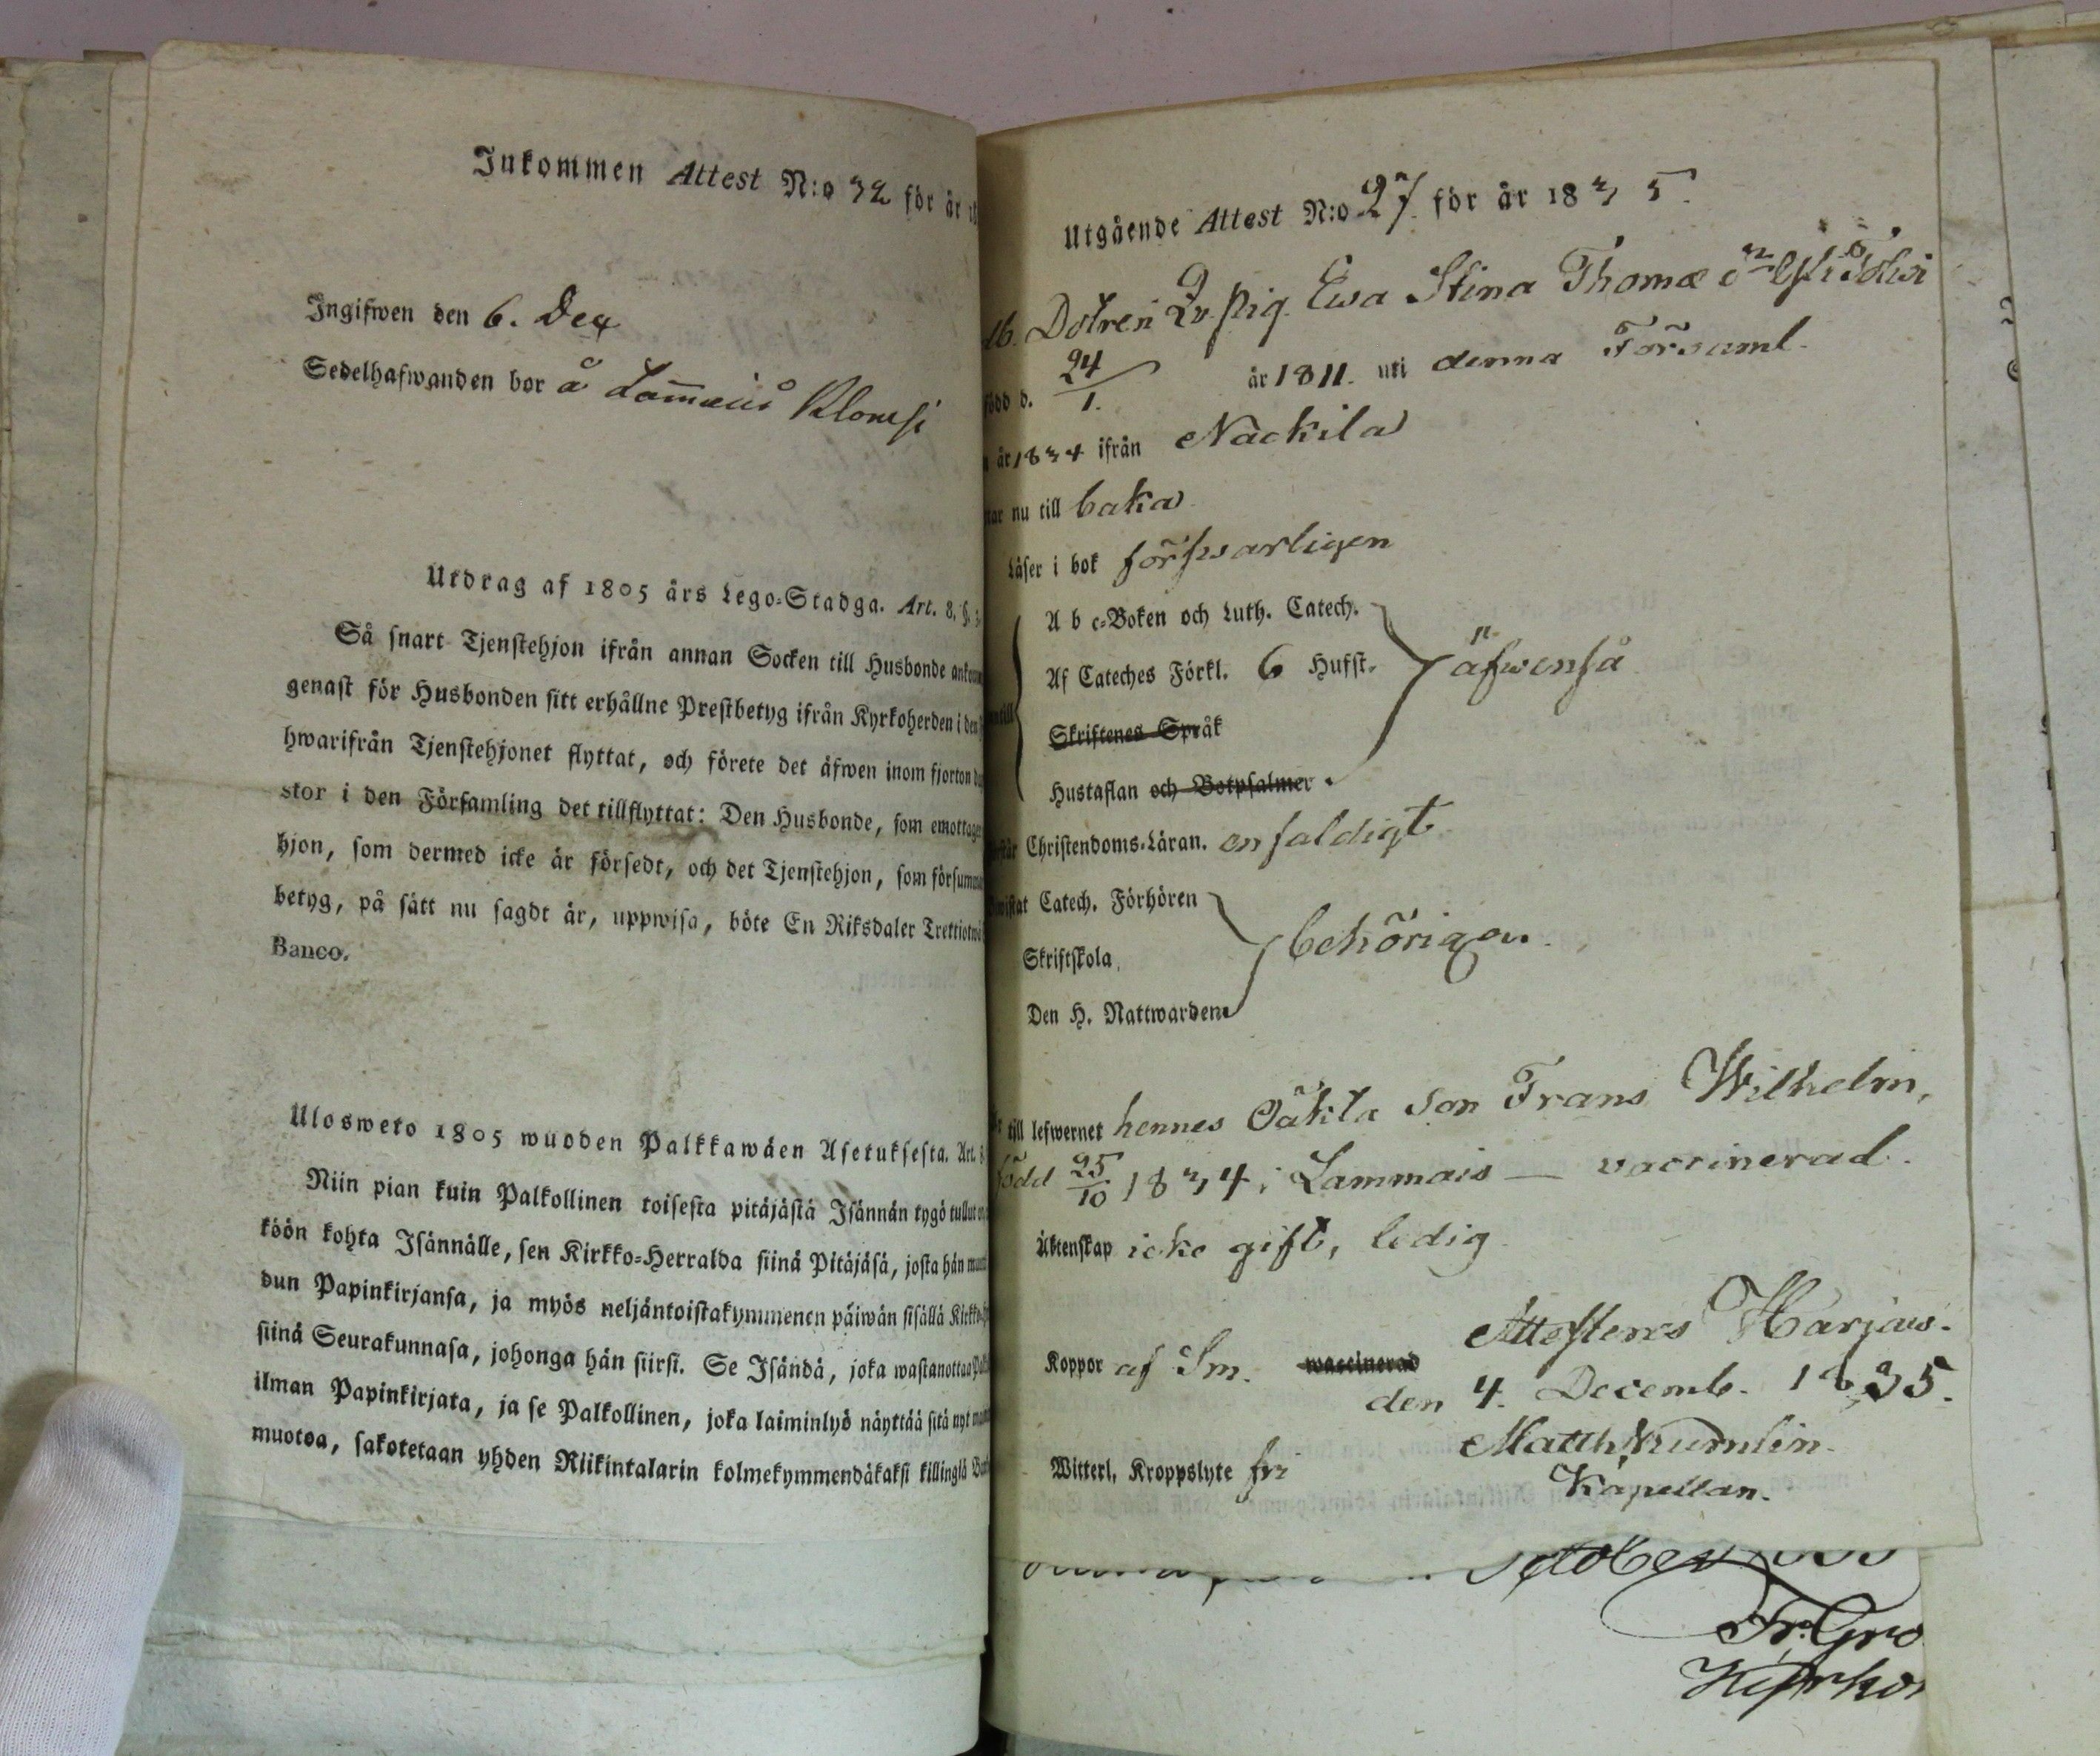 Inkommen Attest N:o 32 för år 18
Ingifwen den 6. Dec
Sedelhafwanden bor å
Utdrag af 1805 års Lego-Stadga. Art. 8, §.
Så snart Tjenstehjon ifrån annan Socken till Husbonde
genast för Husbonden sitt erhållne Prestbetyg ifrån Kyrkoherden i den
hwarifrån Tjenstehjonet flyttat, och förete det äfwen inom fjorton
stor i den Församling det tillflyttat: Den Husbonde, som emottager
hjon, som dermed icke är försedt, och det Tjenstehjon, som
betyg, på sätt nu sagdt är, uppwisa, böte En Riksdaler
Banco.
Ulosweto 1805 wuoden Palkkawäen Asetuksesta. Art. 8
Niin pian kuin Palkollinen toisesta pitäjästä Isännän tygö tullut
köön kohta Isännälle, sen Kirkko-Herralda siinä Pitäjäsä, josta hän
dun Papinkirjansa, ja myös neljäntoistakymmenen päiwän sisällä
siinä Seurakunnasa, johonga hän siirsi. Se Isändä, joka wastanottaa
ilman Papinkirjata, ja se Palkollinen, joka laiminlyö näyttää sitä nyt
muotoa, sakotetaan yhden Riikintalarin kolmekymmendäkaksi killingiä
Utgående Attest N:o 27. för år 1835.
Dotren Qv. pig. Ewa Stina Thomæ
född d. 24/1. år 1811. uti denna Församl.
år 1834 ifrån Nackila
nu till baka
Läser i bok försvarligen
A b c-Boken och Luth. Catech.
Af Cateches Förkl. 6 Hufst. äfwenså
Skriftenes Språk
Hustaflan och Botpsalmer
Christendoms-Läran. enfaldigt
Catech. Förhören
Skriftskola behörigen.
Den H. Nattwarden
till lefwernet hennes Oäkta son Frans Wilhelm,
född 25/10 1834 i Lammais — vaccinerad.
Äktenskap icke gift, ledig
Attesteras Harjaw.
Koppor af Sm. waccinerad
den 4. Decemb. 1835.
Matth Numlin.
Witterl. Kroppslyte fri
Kapellan.
Fr. Gro